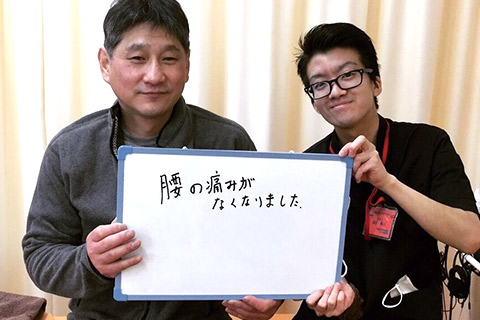 腰の痛みが
なくなりました.